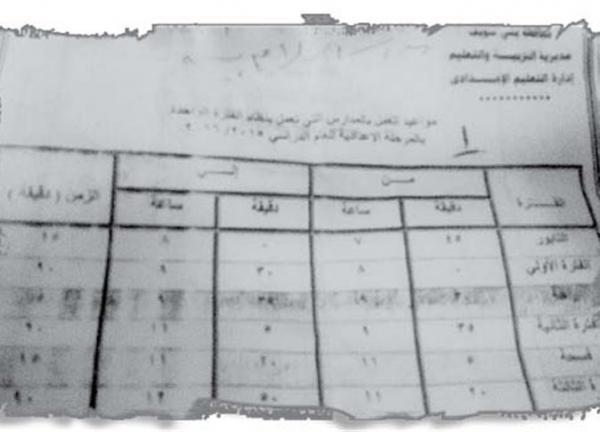 محافظة بني سويف
مديرية التربية والتعليم
إدارة التعليم الإعدادى
مواعيد العمل بالمدارس التي تعمل بنظام الفترة الواحدة
بالمرحلة الاعدادية للعام الدراسي ٢٠١٥/ ٢٠١٦
الفترة من إلى الزمن ( دقيقة )
دقيقة ساعة دقيقة ساعة
الطابور ٤٥ ٧ ٠ ٨ ١٥
الفترة الأولى ٠ ٨ ٣٠ ٩ ٩٠
٩
الفترة الثانية ٣٥ ٩ ٥ ١١ ٩٠
فسحة ٥ ١١ ٢٠ ١١ ١٥
الثالثة ٢٠ ١١ ٥٠ ١٢ ٩٠